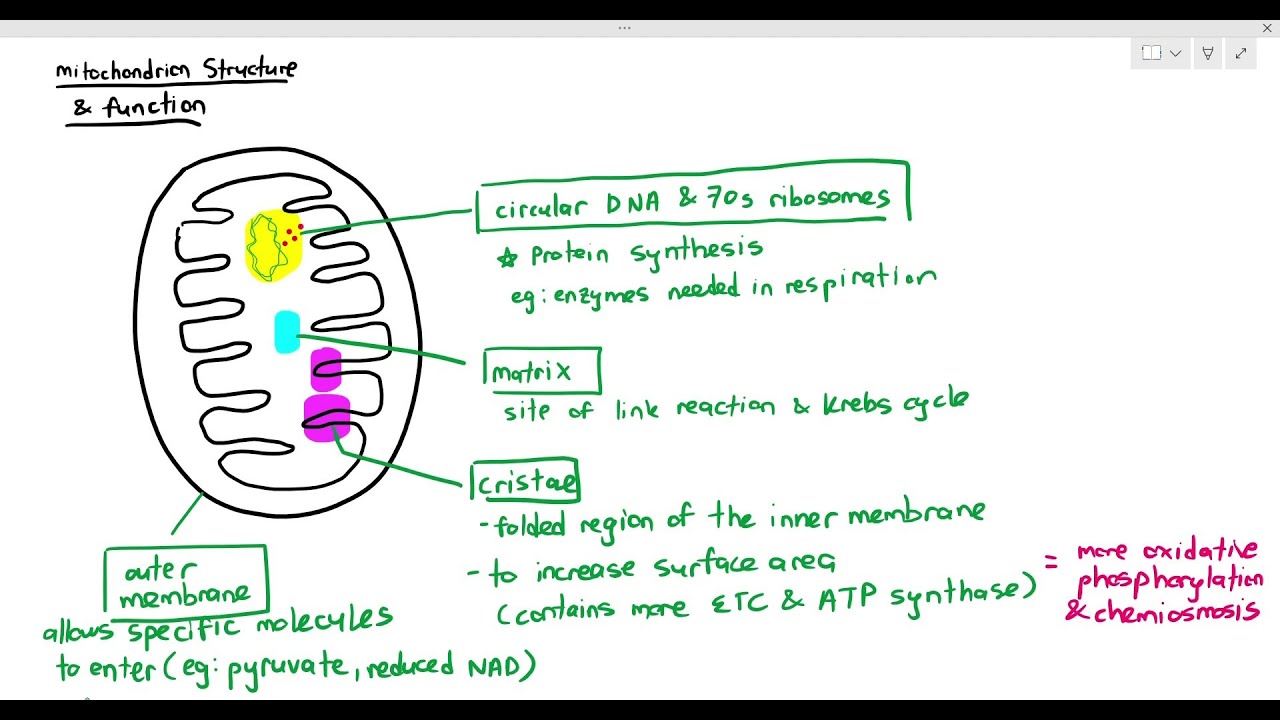 mitochondrion Structure
& function
circular DNA & 70s ribosomes
☆ Protein synthesis
eg: enzymes needed in respiration
matrix
site of link reaction & Krebs cycle
cristae
- folded region of the inner membrane
- to increase surface area
(contains more ETC & ATP synthase)
= more oxidative
phosphorylation
& chemiosmosis
outer
membrane
allows specific molecules
to enter (eg: pyruvate, reduced NAD)